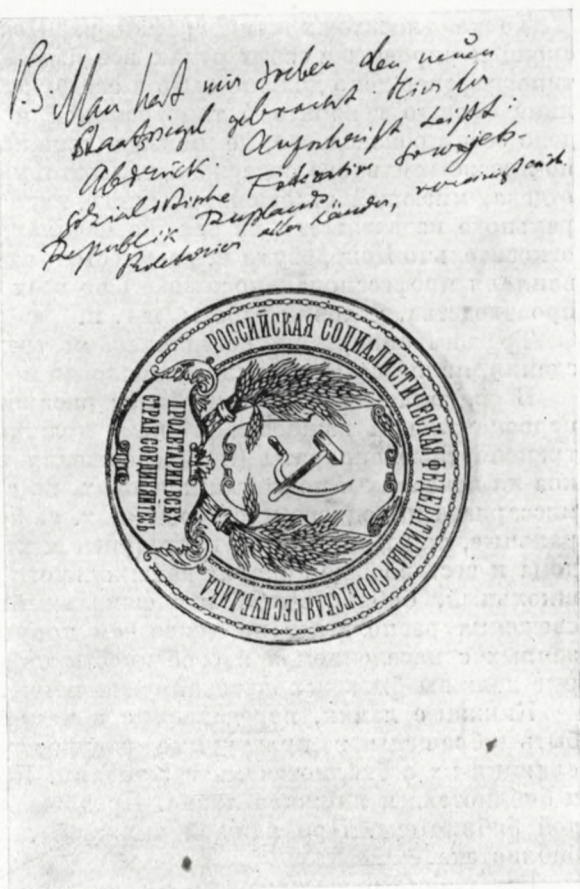 P.S. Man hat mir soeben den neuen
Staatssiegel gebracht. Hier der
Abdruck. Aufschrift heißt:
Sozialistische Föderative Sowjets-
Republik Rußlands.
Proletarier aller Länder, vereinigt euch
РОССИЙСКАЯ СОЦИАЛИСТИЧЕСКАЯ ФЕДЕРАТИВНАЯ СОВЕТСКАЯ РЕСПУБЛИКА
ПРОЛЕТАРИИ ВСЕХ
СТРАН СОЕДИНЯЙТЕСЬ